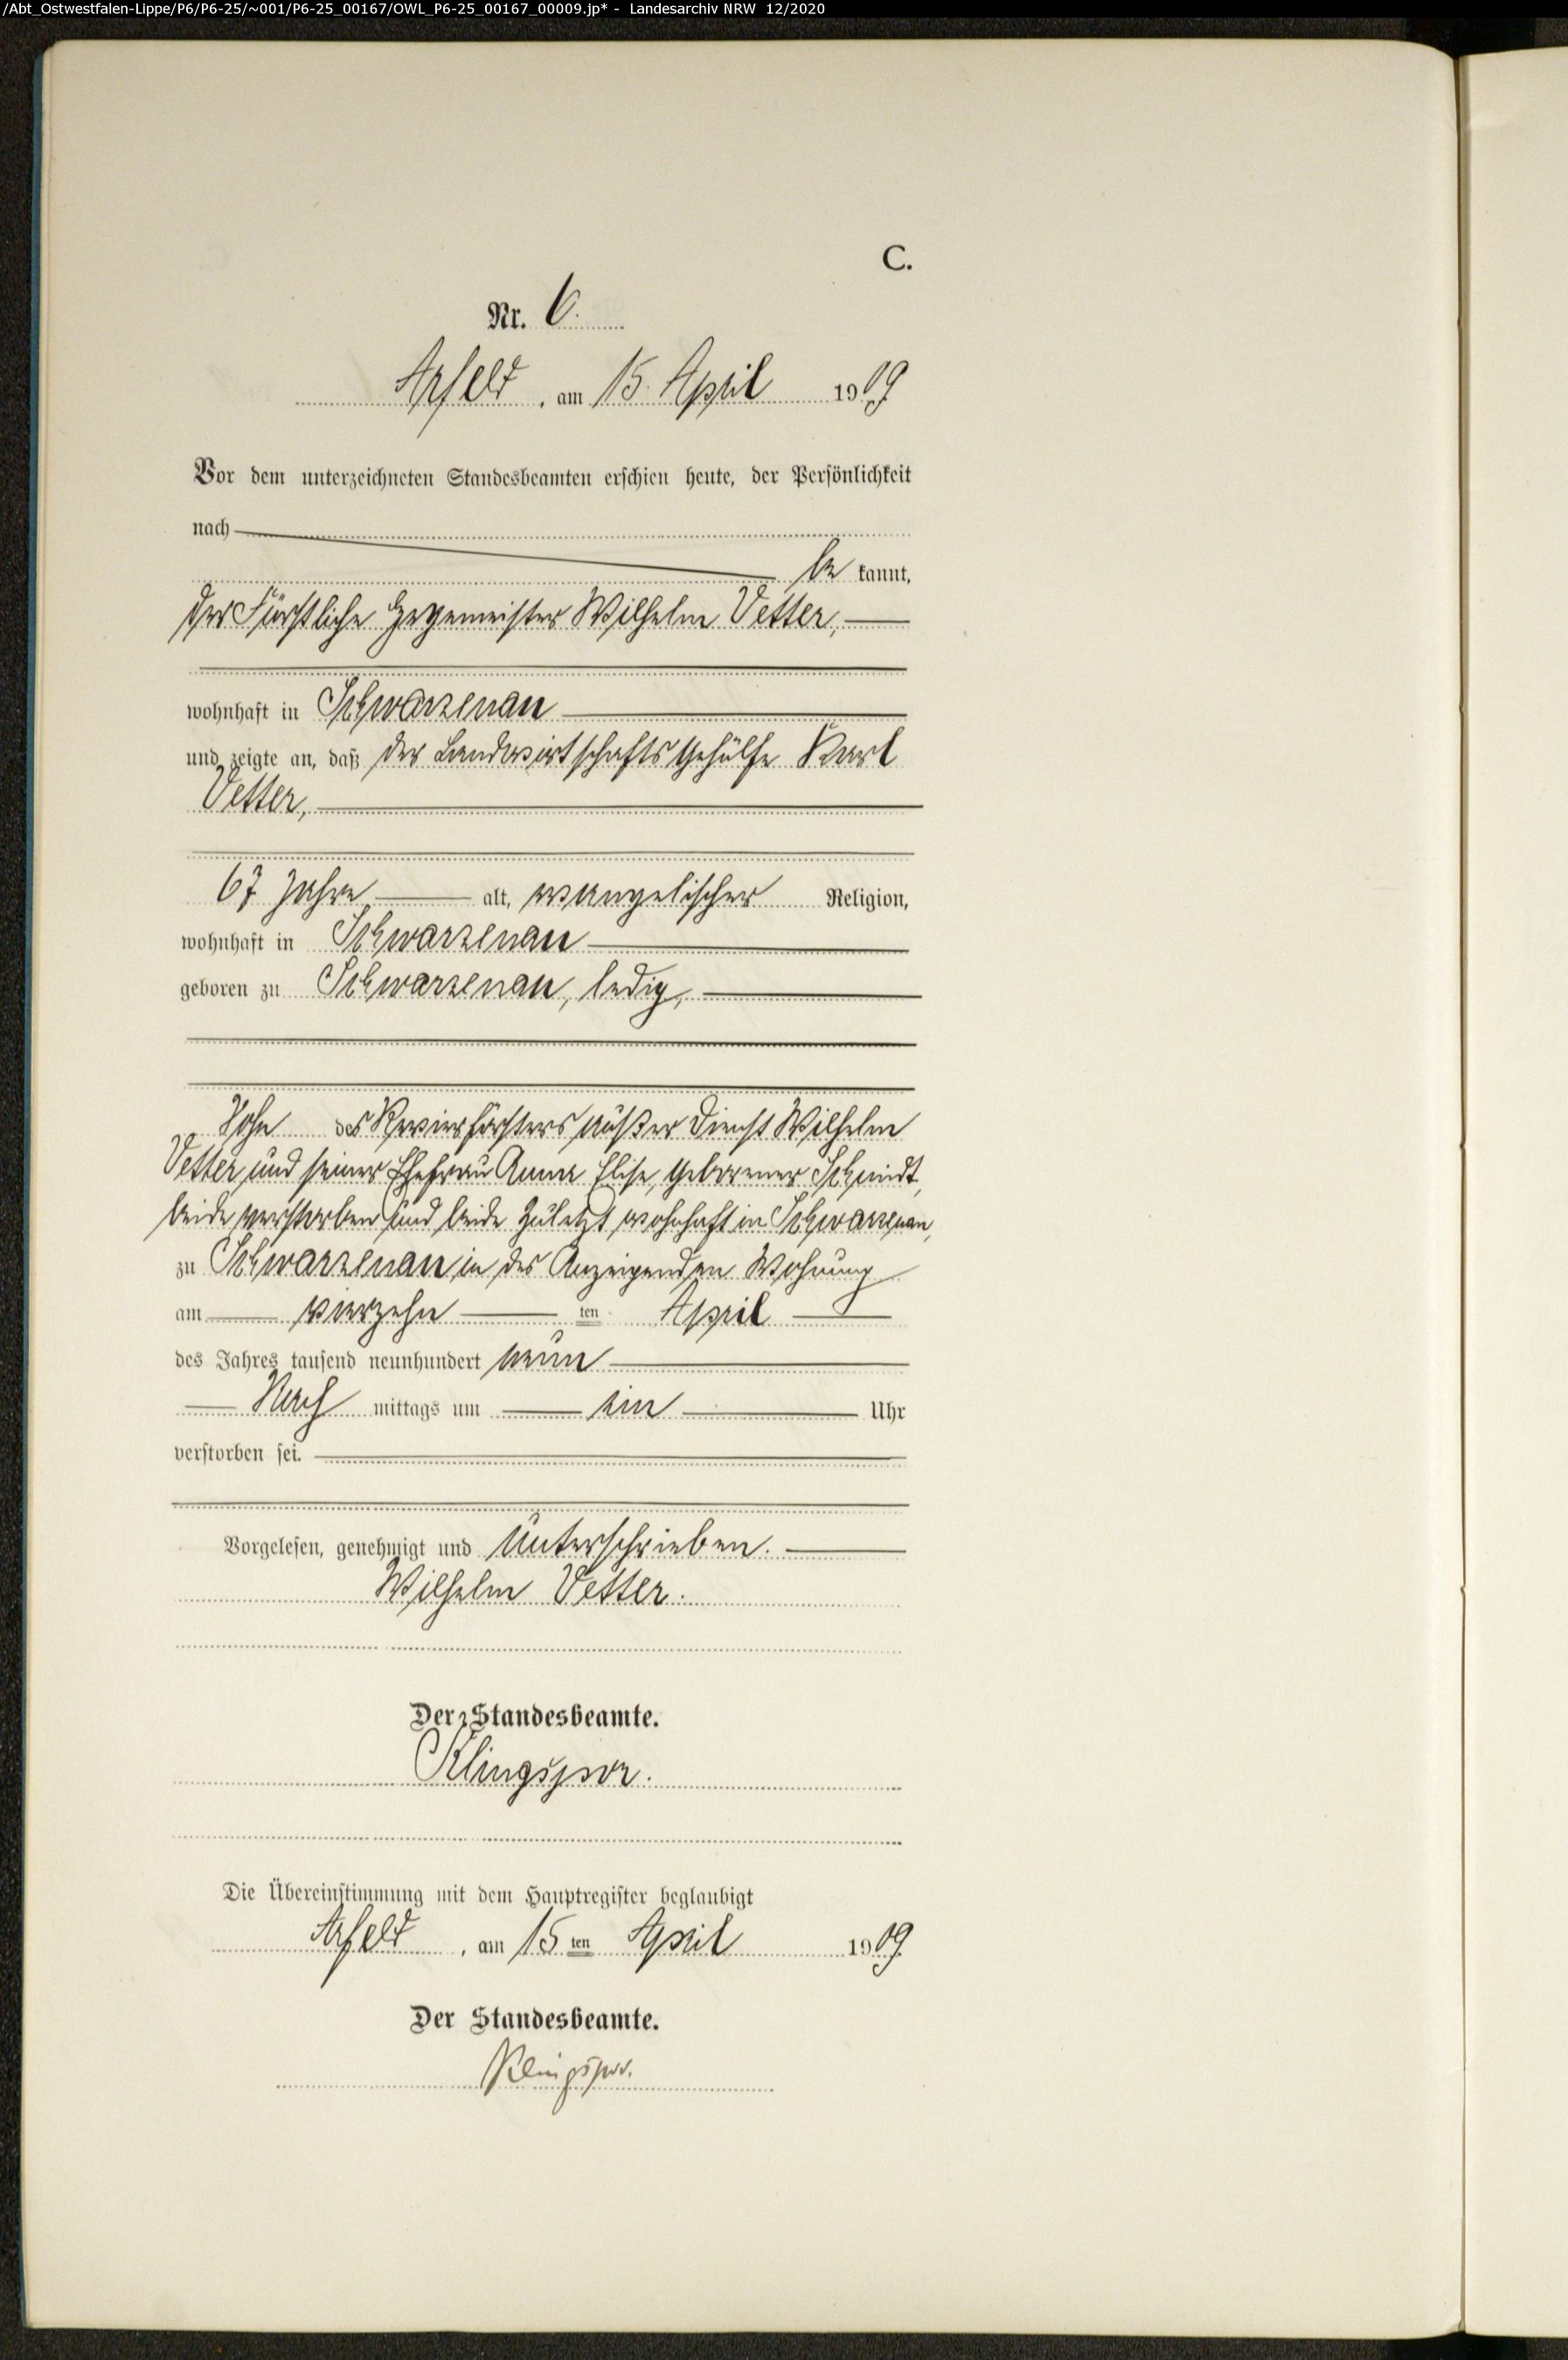 /Abt_Ostwestfalen-Lippe/P6/P6-25/~001/P6-25_00167/OWL_P6-25_00167_00009.jp* - Landesarchiv NRW 12/2020
C.
Nr. 6.
Arfeld, am 15. April 1909
Vor dem unterzeichneten Standesbeamten erschien heute, der Persönlichkeit
nach
be kannt,
der Fürstliche Hegemeister Wilhelm Vetter,
wohnhaft in Schwarzenau
und zeigte an, daß der Landwirtschaftsgehülfe Karl
Vetter,
67 Jahre alt, evangelischer Religion,
wohnhaft in Schwarzenau
geboren zu Schwarzenau, ledig,
Sohn des Revierförsters außer Dienst Wilhelm
Vetter und seiner Ehefrau Anna Elise, geborener Schmidt,
beide verstorben und beide zuletzt wohnhaft in Schwarzenau,
zu Schwarzenau in des Anzeigenden Wohnung
am vierzehn ten April
des Jahres tausend neunhundert neun
Nach mittags um ein Uhr
verstorben sei.
Vorgelesen, genehmigt und unterschrieben.
Wilhelm Vetter.
Der Standesbeamte.
Klingspor.
Die Übereinstimmung mit dem Hauptregister beglaubigt
Arfeld, am 15 ten April 1909.
Der Standesbeamte.
Klingspor.